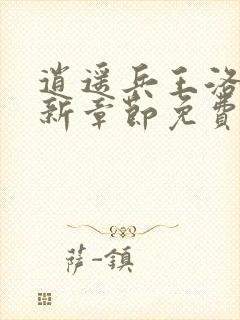 逍遥兵王洛
新章节免费
萨-镇